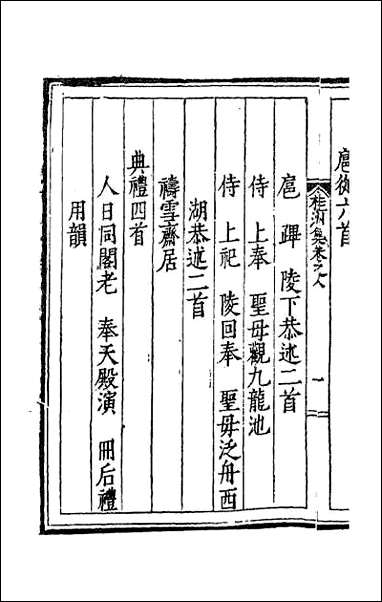 扈從六首
桂洲集卷之八 一
扈蹕 陵下恭述二首
侍 上奉 聖母觀九龍池
侍 上祀 陵回奉 聖母泛舟西
湖恭述二首
禱雪齋居
典禮四首
人日同閣老 奉天殿演 冊后禮
用韻